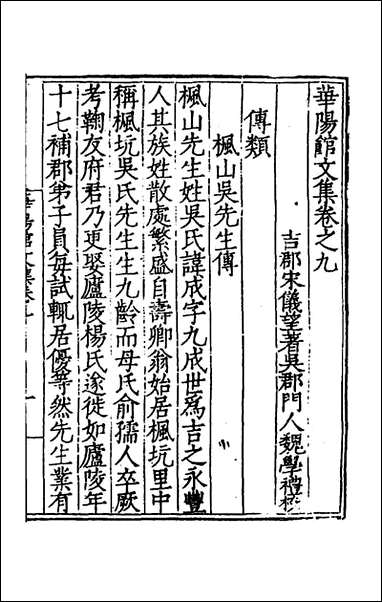 華陽館文集卷之九
吉郡宋儀望著吳郡門人魏學禮校
傳類
楓山吳先生傳
楓山先生姓吳氏諱成字九成世爲吉之永豐
人其族姓散處繁盛自壽卿翁始居楓坑里中
稱楓坑吳氏先生生九齡而母氏俞孺人卒厥
考鞠友府君乃更娶廬陵楊氏遂徙如廬陵年
十七補郡弟子員每試輒居優等然先生業有